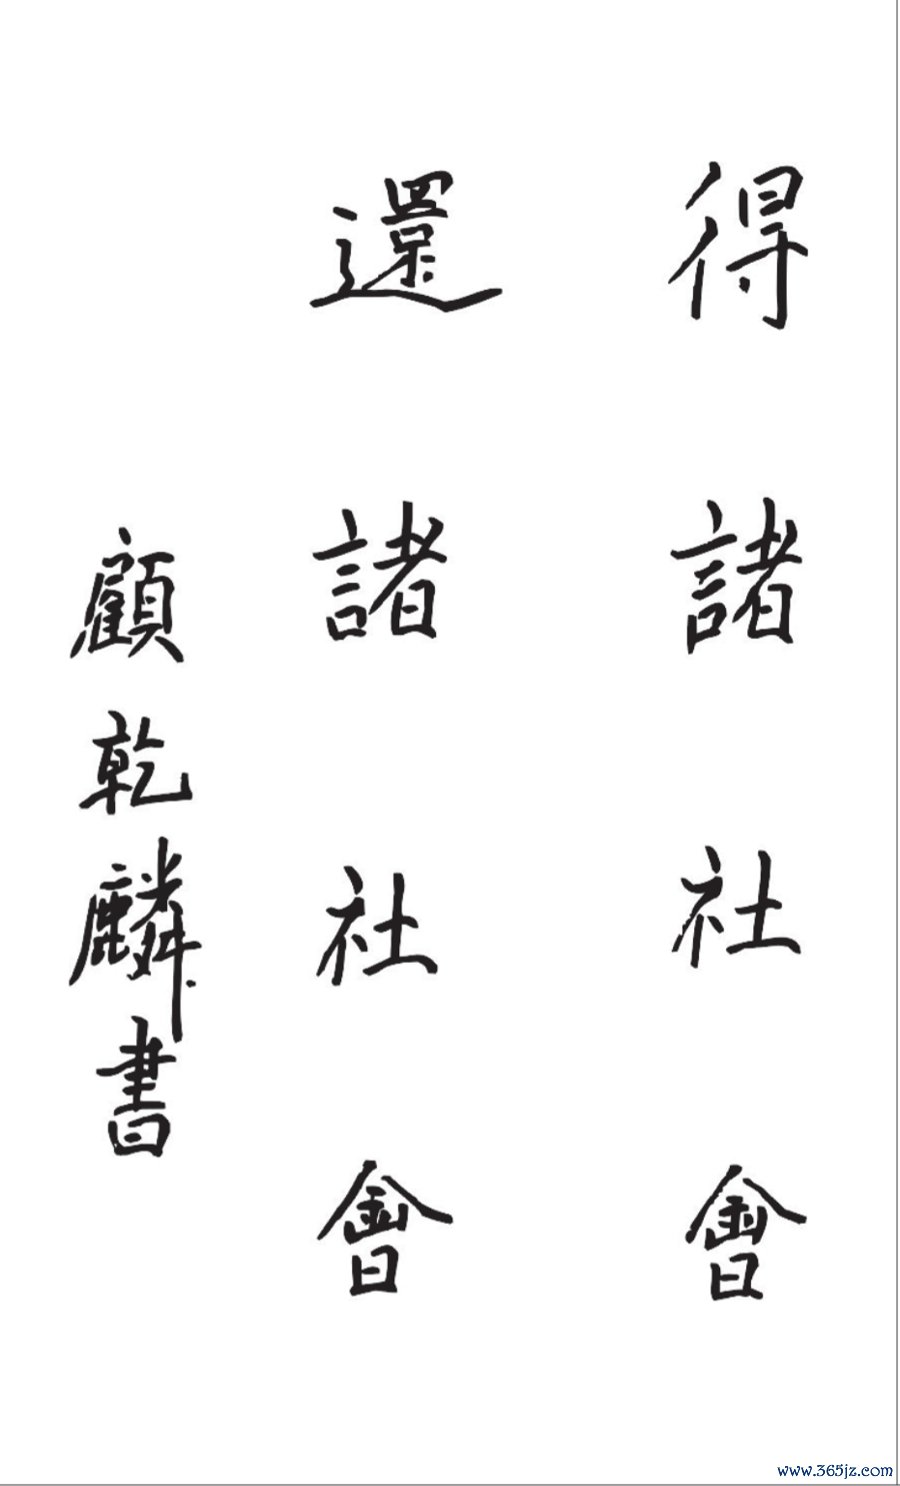 得諸社會
還諸社會
顧乾麟書
www.365jz.com